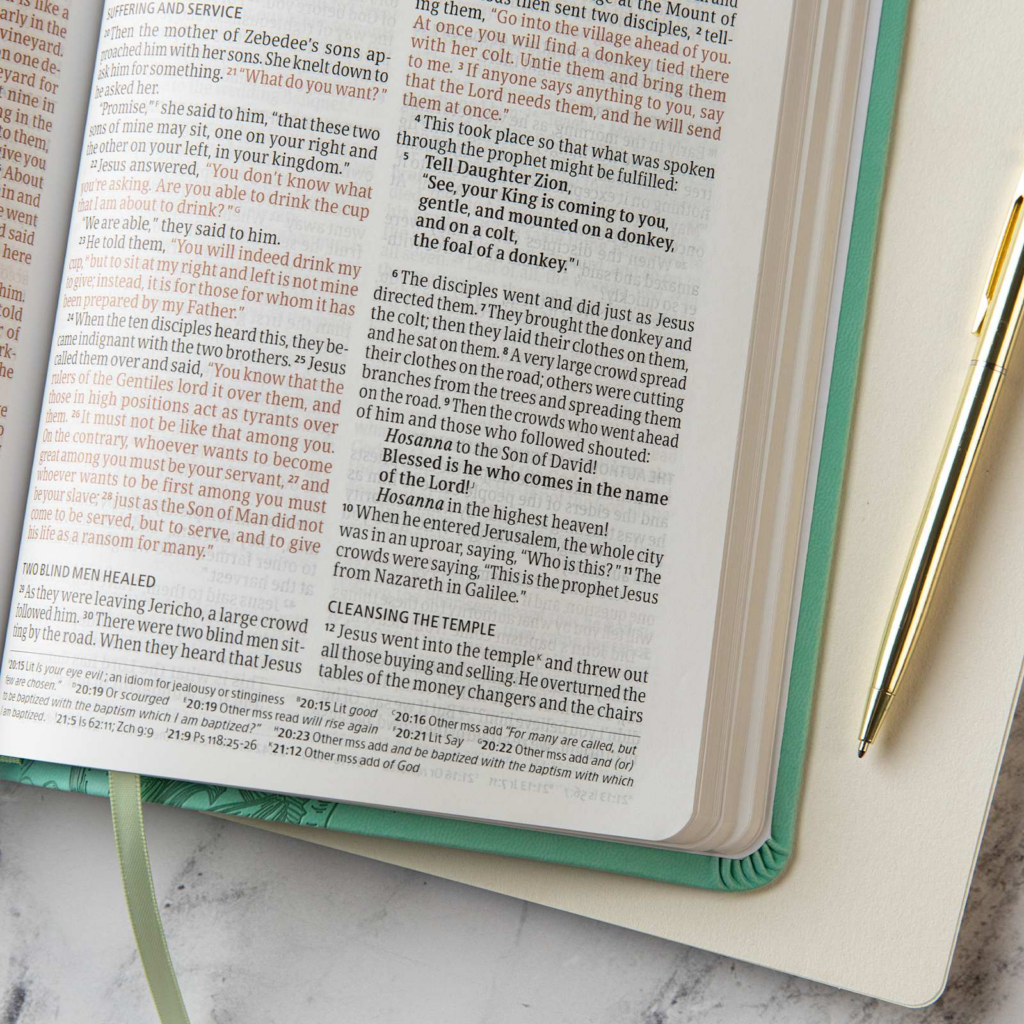 is like a
arly in the
vineyard.
n one de-
eyard for
t nine in
ng in the
to them,
give you
About
in and
e went
d said
here
him.
told
r of
rk-
he
SUFFERING AND SERVICE
20 Then the mother of Zebedee's sons ap-
proached him with her sons. She knelt down to
ask him for something. 21 "What do you want?"
he asked her.
"Promise," she said to him, "that these two
sons of mine may sit, one on your right and
the other on your left, in your kingdom."
22 Jesus answered, "You don't know what
you're asking. Are you able to drink the cup
that I am about to drink?"
"We are able," they said to him.
23 He told them, "You will indeed drink my
cup, but to sit at my right and left is not mine
to give; instead, it is for those for whom it has
been prepared by my Father."
24 When the ten disciples heard this, they be-
came indignant with the two brothers. 25 Jesus
called them over and said, "You know that the
rulers of the Gentiles lord it over them, and
those in high positions act as tyrants over
them. 26 It must not be like that among you.
On the contrary, whoever wants to become
great among you must be your servant, 27 and
whoever wants to be first among you must
be your slave; 28 just as the Son of Man did not
come to be served, but to serve, and to give
his life as a ransom for many."
TWO BLIND MEN HEALED
29 As they were leaving Jericho, a large crowd
followed him. 30 There were two blind men sit-
ting by the road. When they heard that Jesus
at the Mount of
then sent two disciples, 2 tell-
ing them, "Go into the village ahead of you.
At once you will find a donkey tied there
with her colt. Untie them and bring them
to me. 3 If anyone says anything to you, say
that the Lord needs them, and he will send
them at once."
4 This took place so that what was spoken
through the prophet might be fulfilled:
5 Tell Daughter Zion,
"See, your King is coming to you,
gentle, and mounted on a donkey,
and on a colt,
the foal of a donkey."
6 The disciples went and did just as Jesus
directed them. 7 They brought the donkey and
the colt; then they laid their clothes on them,
and he sat on them. 8 A very large crowd spread
their clothes on the road; others were cutting
branches from the trees and spreading them
on the road. 9 Then the crowds who went ahead
of him and those who followed shouted:
Hosanna to the Son of David!
Blessed is he who comes in the name
of the Lord!
Hosanna in the highest heaven!
10 When he entered Jerusalem, the whole city
was in an uproar, saying, "Who is this?" 11 The
crowds were saying, "This is the prophet Jesus
from Nazareth in Galilee."
CLEANSING THE TEMPLE
12 Jesus went into the temple and threw out
all those buying and selling. He overturned the
tables of the money changers and the chairs
20:15 Lit Is your eye evil; an idiom for jealousy or stinginess 20:15 Lit good 20:16 Other mss add "For many are called, but
few are chosen." 20:19 Or scourged 20:19 Other mss read will rise again 20:21 Lit Say 20:22 Other mss add and (or)
to be baptized with the baptism which I am baptized?" 20:23 Other mss add and be baptized with the baptism with which
I am baptized. 21:5 Is 62:11; Zch 9:9 21:9 Ps 118:25-26 21:12 Other mss add of God